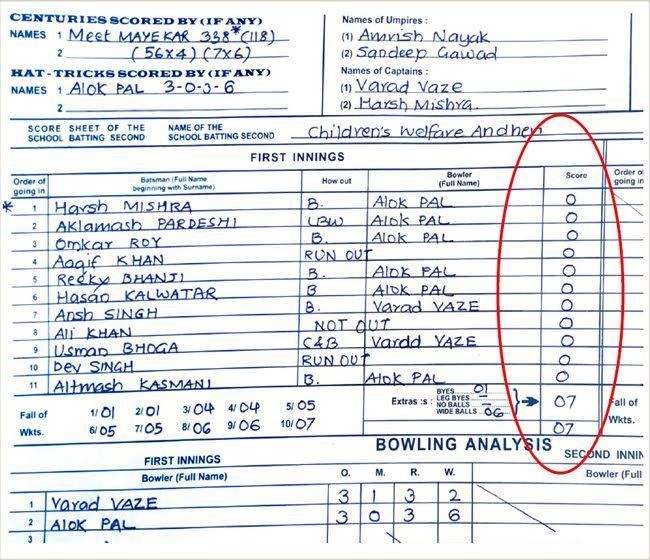 CENTURIES SCORED BY (IF ANY)
NAMES 1 Meet MAYEKAR 338* (118)
2 (56x4) (7x6)
HAT-TRICKS SCORED BY (IF ANY)
NAMES 1 Alok PAL 3-0-3-6
2
Names of Umpires :
(1) Amrish Nayak
(2) Sandeep Gawad
Names of Captains :
(1) Varad Vaze
(2) Harsh Mishra.
SCORE SHEET OF THE SCHOOL BATTING SECOND NAME OF THE SCHOOL BATTING SECOND Children's Welfare Andheri
FIRST INNINGS
Order of going in Batsman (Full Name beginning with Surname) How out Bowler (Full Name) Score Order of going in
* 1 Harsh MISHRA B. Alok PAL 0
2 Aklamash PARDESHI LBW Alok PAL 0
3 Omkar ROY B. Alok PAL 0
4 Aaqif KHAN RUN OUT 0
5 Reeky BHANJI B. Alok PAL 0
6 Hasan KALWATAR B Alok PAL 0
7 Ansh SINGH B. Varad VAZE 0
8 Ali KHAN NOT OUT 0
9 Usman BHOGA C&B Varad VAZE 0
10 Dev SINGH RUN OUT 0
11 Altmash KASMANI B. Alok PAL 0
Extras :s : BYES 01 LEG BYES NO BALLS WIDE BALLS 06 07
Fall of Wkts. 1/01 2/01 3/04 4/04 5/05
6/05 7/05 8/06 9/06 10/07
07
Fall of Wkts.
BOWLING ANALYSIS
FIRST INNINGS SECOND INNIN
Bowler (Full Name) O. M. R. W. Bowler (Full
1 Varad VAZE 3 1 3 2
2 Alok PAL 3 0 3 6